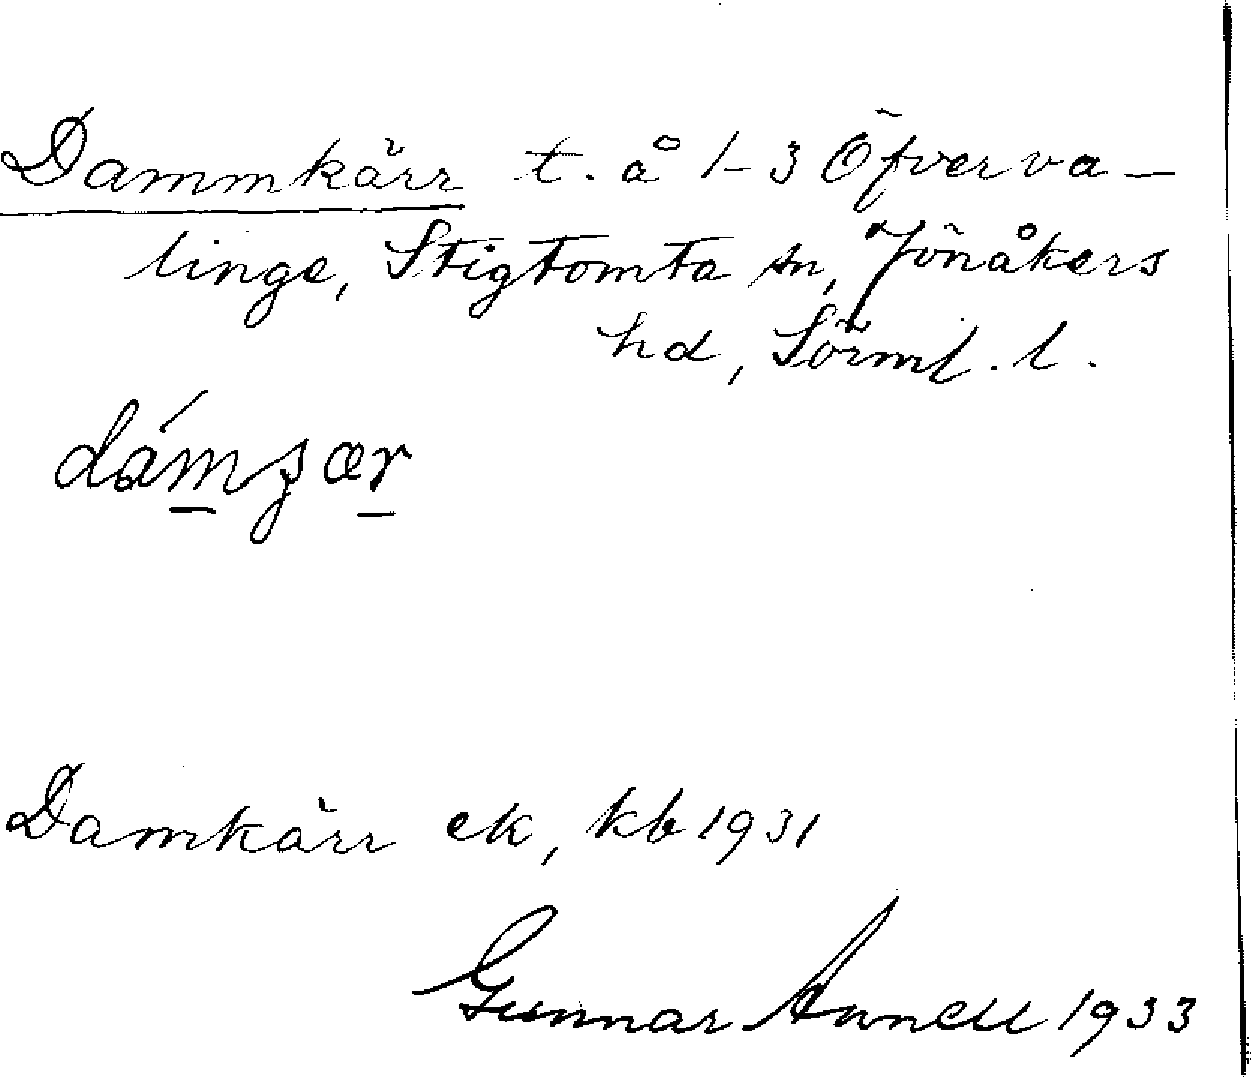 Dammkärr t. å 1-3 Öfverva-
linge, Stigtomta sn, Jönåkers
hd, Sörml. l.
Damkärr ek, kb 1931
Gunnar Annell 1933